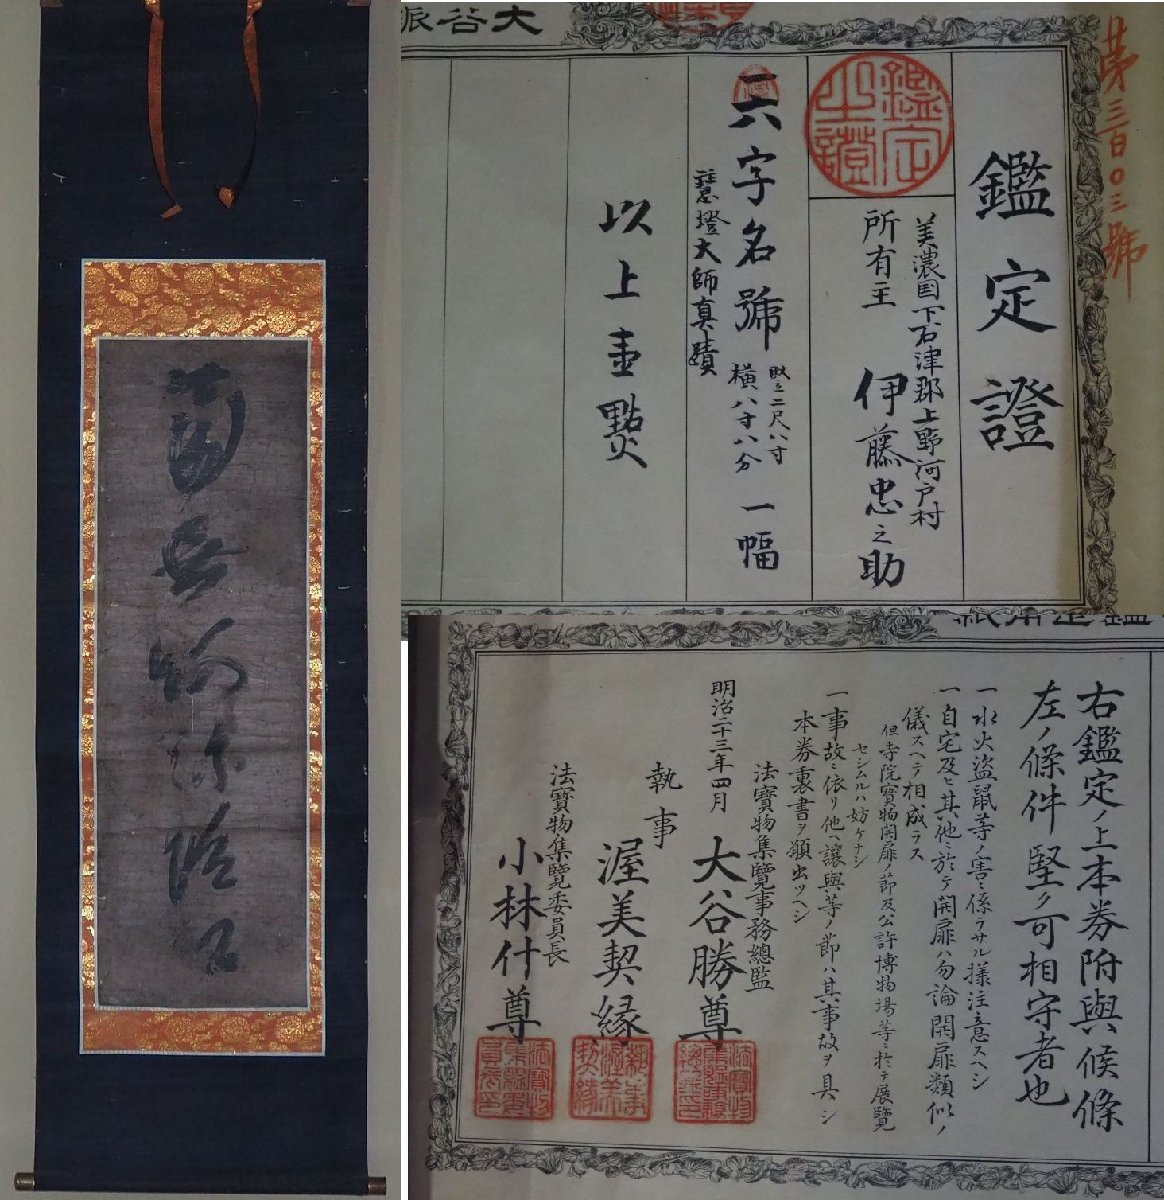 南無阿弥陀仏
大谷派
第三百〇三號
鑑定證
鑑定之證
美濃国下石津郡上野河戸村
所有主 伊藤忠之助
一六字名號 竪二尺八寸 横八寸八分 一幅
慧燈大師真蹟
以上壹點
右鑑定ノ上本券附與候條
左ノ條件堅ク可相守者也
一水火盗鼠等ノ害ニ係ラサル様注意スヘシ
一自宅及ヒ其他ニ於テ開扉ハ勿論開扉類似ノ
儀スヘテ相成ラス
但寺院寳物開扉ノ節及公許博物場等ニ於テ展覧
セシムルハ妨ケナシ
一事故ニ依リ他ヘ譲與等ノ節ハ其事故ヲ具シ
本券裏書ヲ願出ツヘシ
明治二十三年四月
法寳物集覽事務總監
大谷勝尊
執事
渥美契縁
法寳物集覽委員長
小林什尊